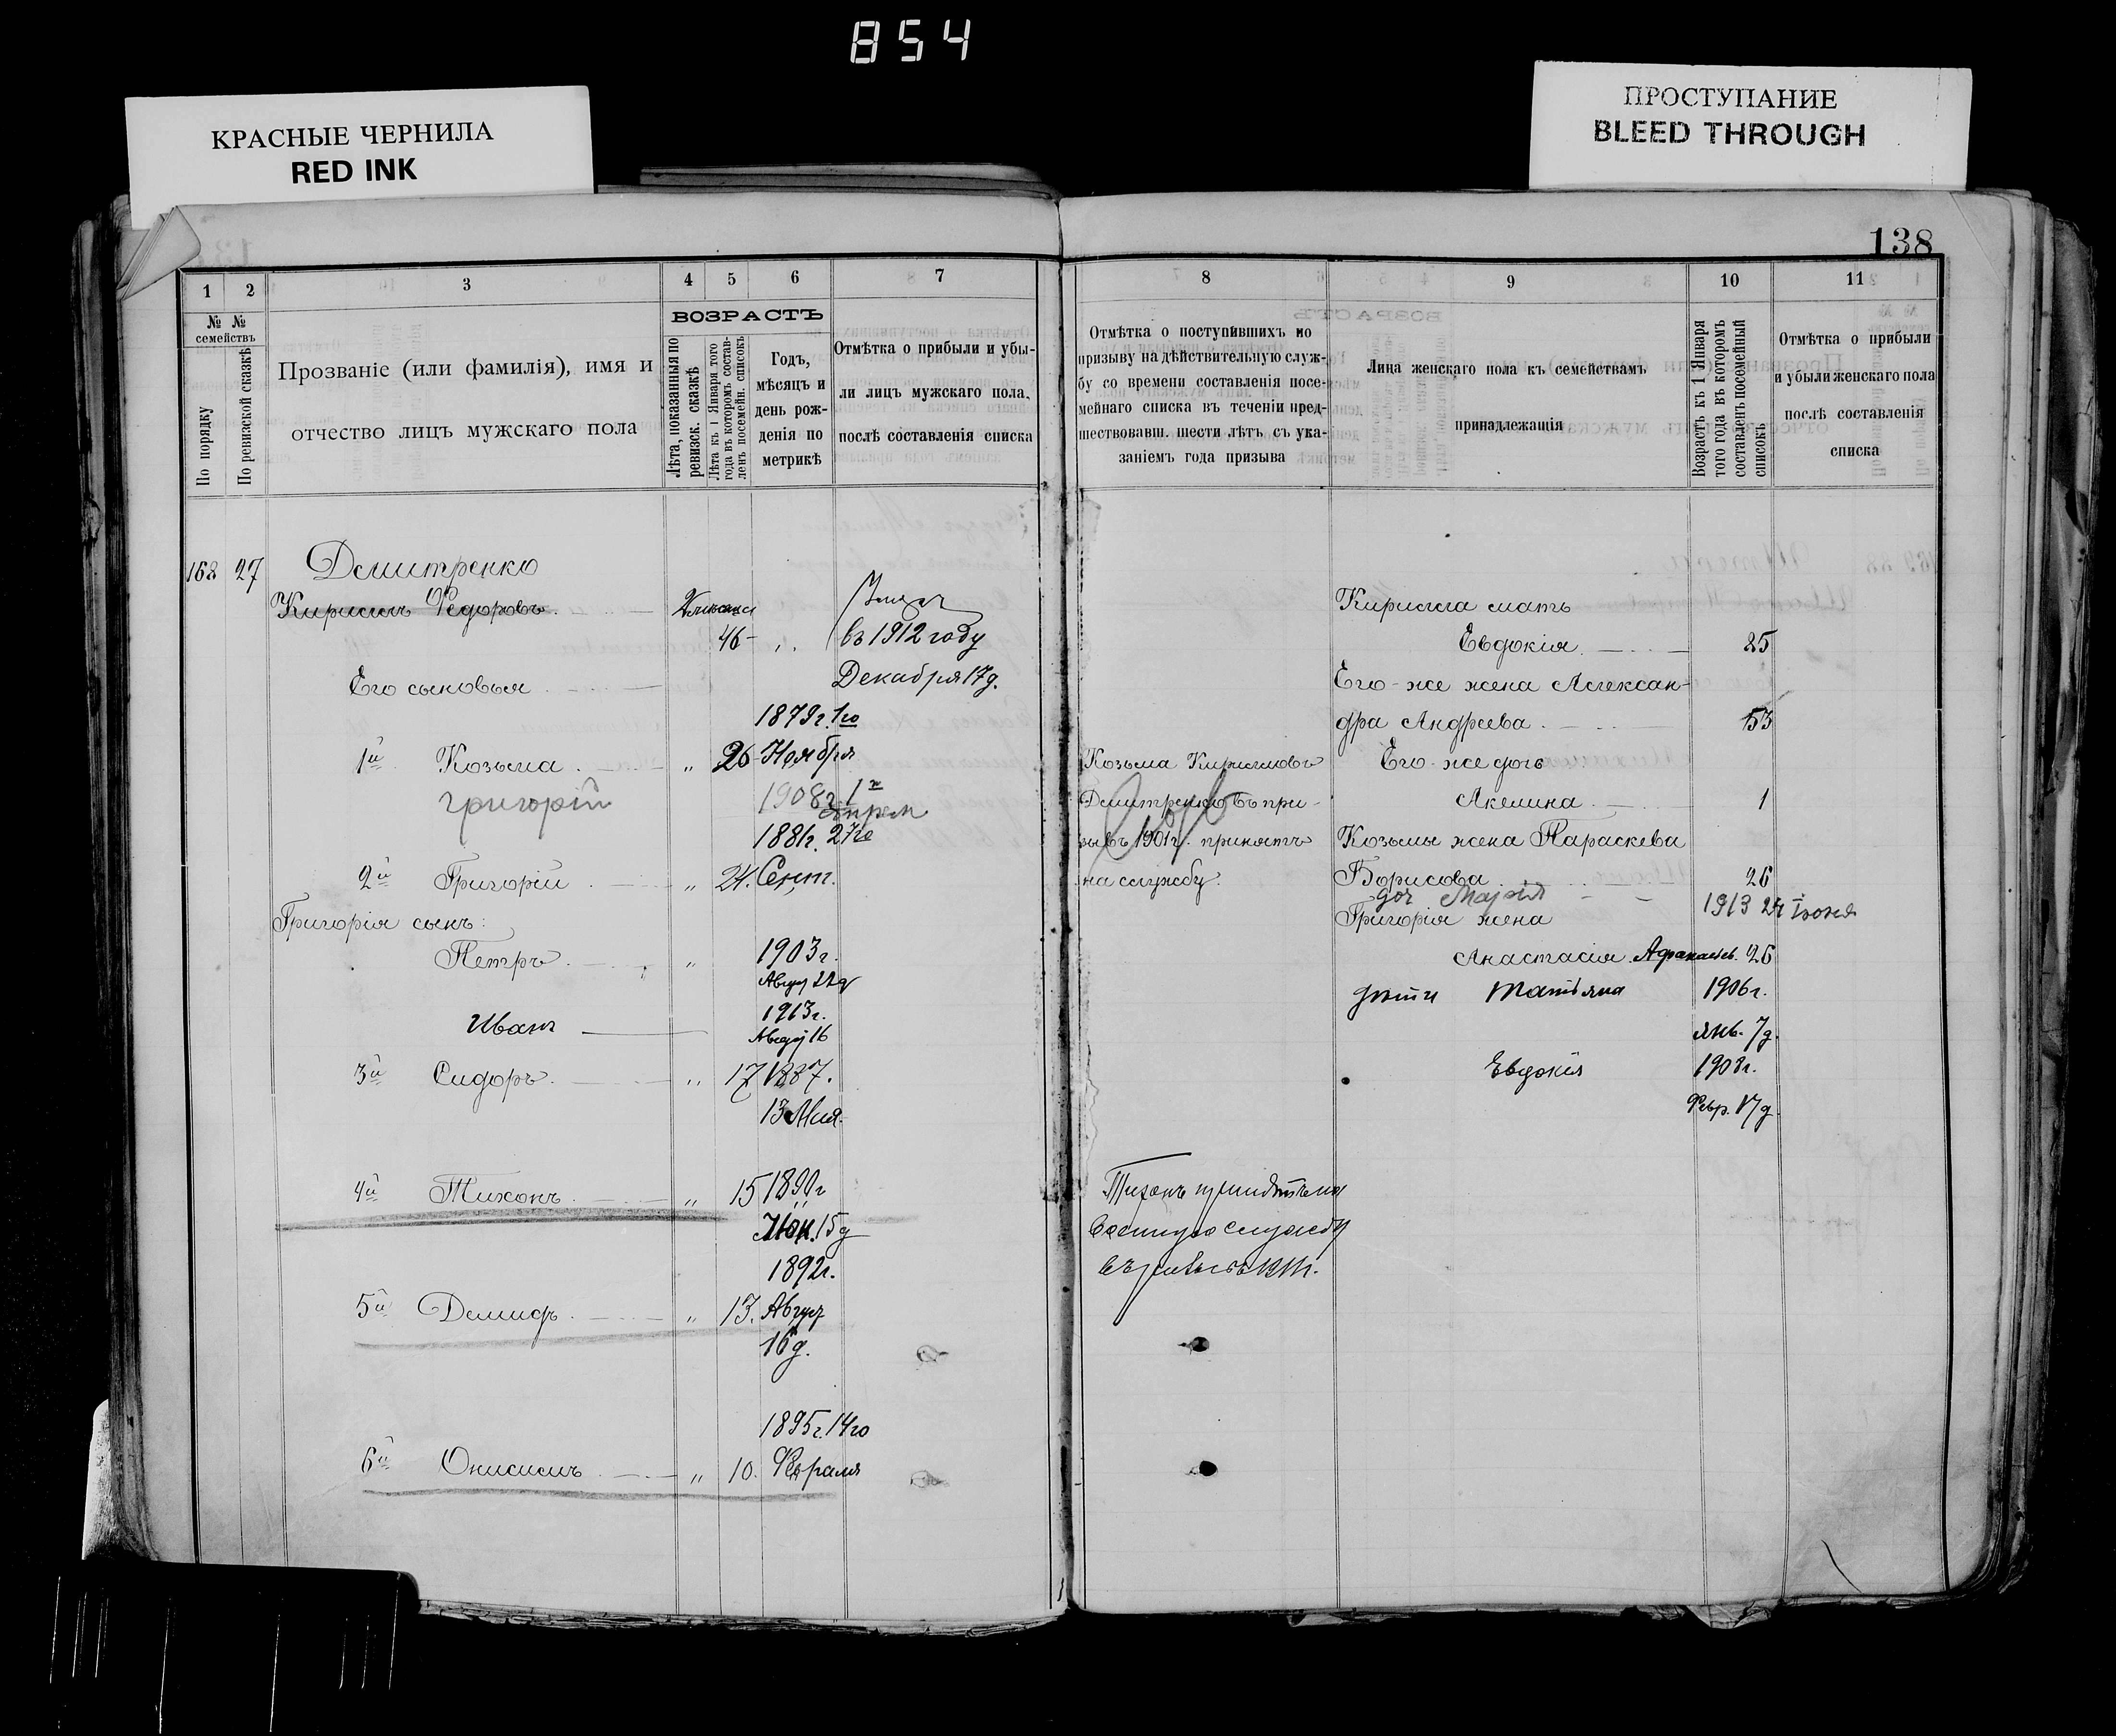 854
КРАСНЫЕ ЧЕРНИЛА
RED INK
ПРОСТУПАНИЕ
BLEED THROUGH
138
1 2 3 4 5 6 7
№ № семействъ
По порядку
По ревизской сказкѣ
Прозваніе (или фамилія), имя и
отчество лицъ мужскаго пола
ВОЗРАСТЪ
Лѣта, показанныя по
ревизск. сказкѣ
Лѣта къ 1 Января того
года въ которомъ состав-
ленъ посемейн. списокъ
Годъ,
мѣсяцъ и
день рож-
денія по
метрикѣ
Отмѣтка о прибыли и убы-
ли лицъ мужскаго пола,
послѣ составленія списка
168 27 Демитренко
Кирилъ Ѳедоровъ
46 въ 1912 году
Его сыновья Декабря 17д.
1879г. 1го
1й Козьма „ 26 Ноября
Григорій 1908г 1го
Апреля
1881г. 27го
2й Григорій „ 24. Сент.
Григорія сынъ:
Петръ „ 1903г.
Авгус 22д
Иванъ 1913г.
Август 16
3й Сидоръ „ 17 1887.
13 Мая.
4й Тихонъ „ 15 1890г
Іюн. 15д
1892г.
5й Демидъ „ 13. Авгус
16д.
1895г. 14го
6й Онисимъ „ 10. Февраля
8 9 10 11
Отмѣтка о поступившихъ по
призыву на дѣйствительную служ-
бу со времени составленія посе-
мейнаго списка въ теченіи пред-
шествовавш. шести лѣтъ съ ука-
заніемъ года призыва
Лица женскаго пола къ семействамъ
принадлежащія
Возрастъ къ 1 Января
того года въ которомъ
составленъ посемейный
списокъ
Отмѣтка о прибыли
и убыли женскаго пола
послѣ составленія
списка
Кирилла мать
Евдокія 85
Его-же жена Алексан-
дра Андреева 53
Козьма Кирилловъ Его-же дочь
Демитренко въ при- Акелина 1
зывъ 1901г. принятъ Козьмы жена Параскева
на службу. Борисова 26
доч Марія 1913 24 Іюня
Григорія жена
Анастасія Афанасьев. 26
дѣти Татьяна 1906г.
янв. 7д.
Евдокія 1908г.
Февр. 17д.
Тихонъ принятъ на
военную службу
1911г.